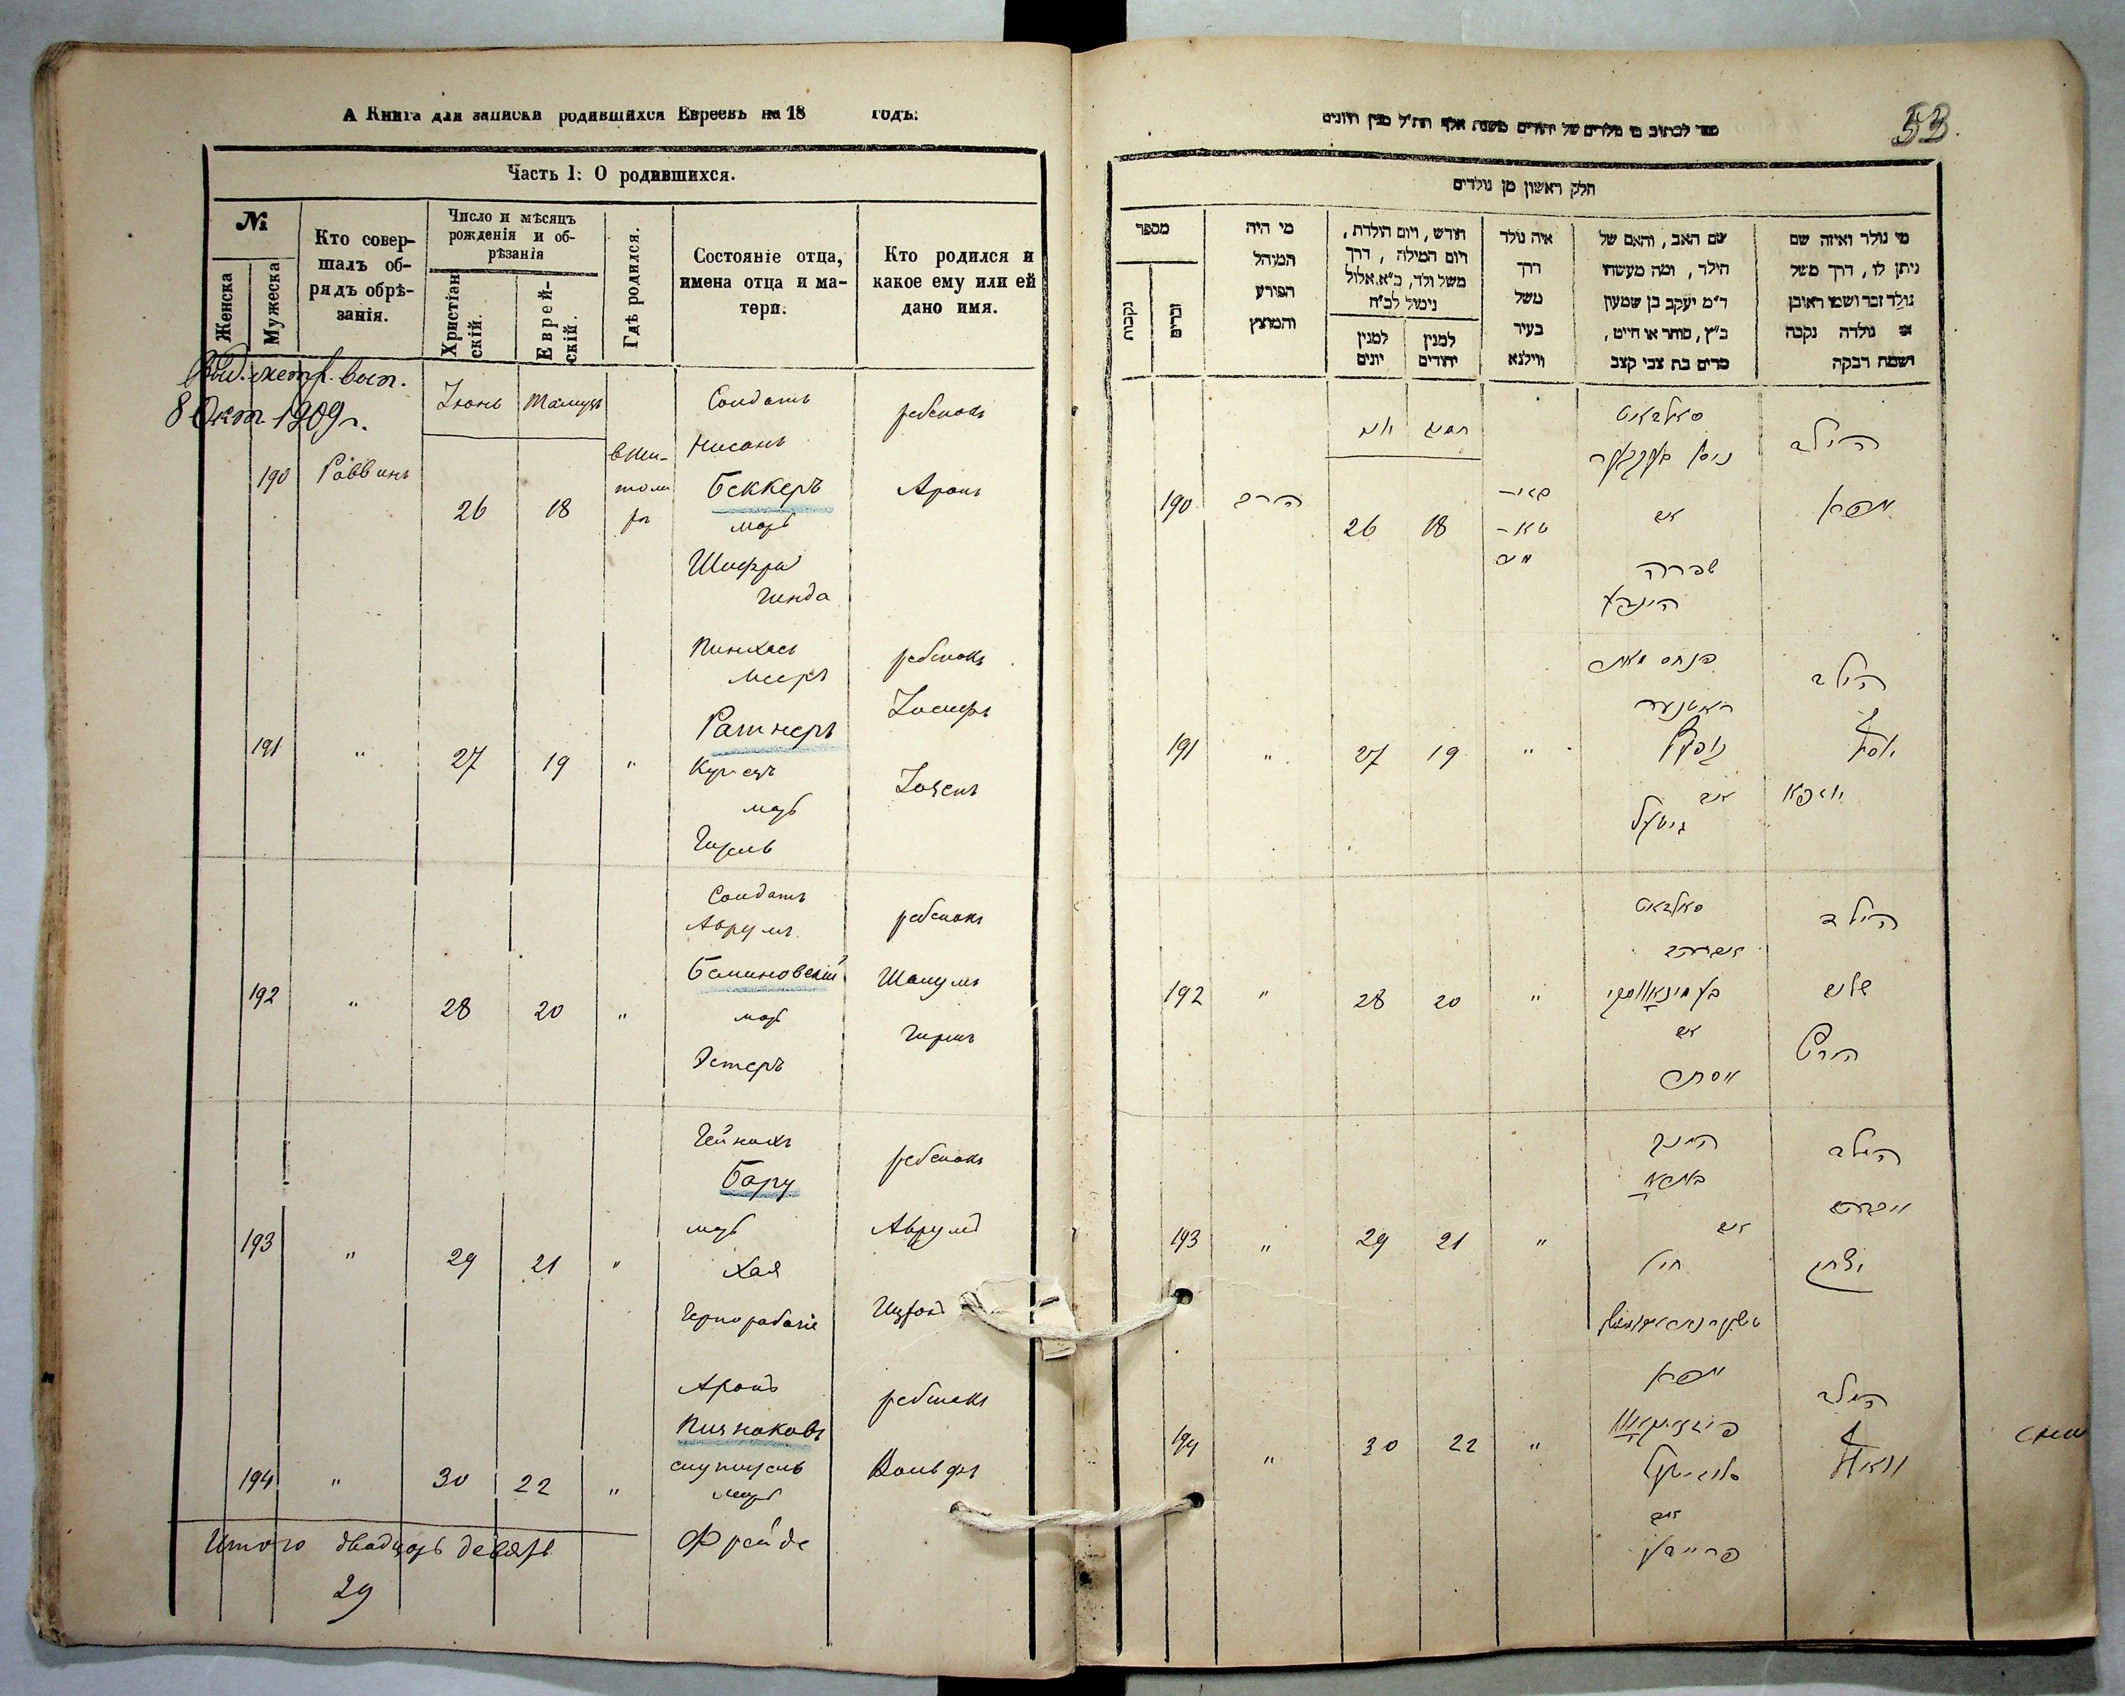 А Книга для записки родившихся Евреевъ на 18 годъ.
Часть I: О родившихся.
№
Женска
Мужеска
Кто совер-
шалъ об-
рядъ обрѣ-
занія.
Число и мѣсяцъ
рожденія и об-
рѣзанія
Христіан
скій.
Еврей-
скій.
Гдѣ родился.
Состояніе отца,
имена отца и ма-
тери.
Кто родился и
какое ему или ей
дано имя.
Выд. метр. вып.
8 Окт. 1909 г.
Іюнь
Тамузъ
190
Раввинъ
26
18
в Жи-
томи
рѣ
Солдатъ
Нисонъ
Беккеръ
мать
Шифра
Гинда
ребенокъ
Аронъ
191
"
27
19
"
Пинхасъ
Мееръ
Ратнеръ
Купецъ
мать
Гитель
ребенокъ
Іосифъ
192
"
28
20
"
Солдатъ
Аврумъ
мать
Эстеръ
ребенокъ
Шолумъ
Гиршъ
193
"
29
21
"
Гейнахъ
Бару
мать
Хая
Чернорабочіе
ребенокъ
Аврумъ
Ицхокъ
194
"
30
22
"
Аронъ
служитель
мать
Фрейде
ребенокъ
Вольфъ
Итого двадцать девять
29
53
ספר לכתוב מי נולדים של יהודים משנת אלף תת"ל מנין יוונים
חלק ראשון מן נולדים
מספר
נקבות
זכרים
מי היה
המוהל
הפורע
והמוצץ
חודש, ויום הולדת,
ויום המילה, דרך
משל ולד, כ"א אלול
נימול לכ"ח
למנין
יוונים
למנין
יהודים
איה נולד
דרך
משל
בעיר
ווילנא
שם האב, והאם של
הילד, ומה מעשהו
ד"מ יעקב בן שמעון
כ"ץ, סוחר או חייט,
מרים בת צבי קצב
מי נולד ואיזה שם
ניתן לו, דרך משל
נולד זכר ושמו ראובן
או נולדה נקבה
ושמה רבקה
190
הרב
26
18
סאלדאט
אם
שפרה
הינדע
הילד
191
"
27
19
"
פנחס מאיר
ראטנער
קופעץ
אם
גיטעל
הילד
יוסף
192
"
28
20
"
סאלדאט
אברהם
אם
אסתר
הילד
שלום
הירש
193
"
29
21
"
אם
הילד
אברהם
יצחק
194
"
30
22
"
אם
פריידע
הילד
וואלף